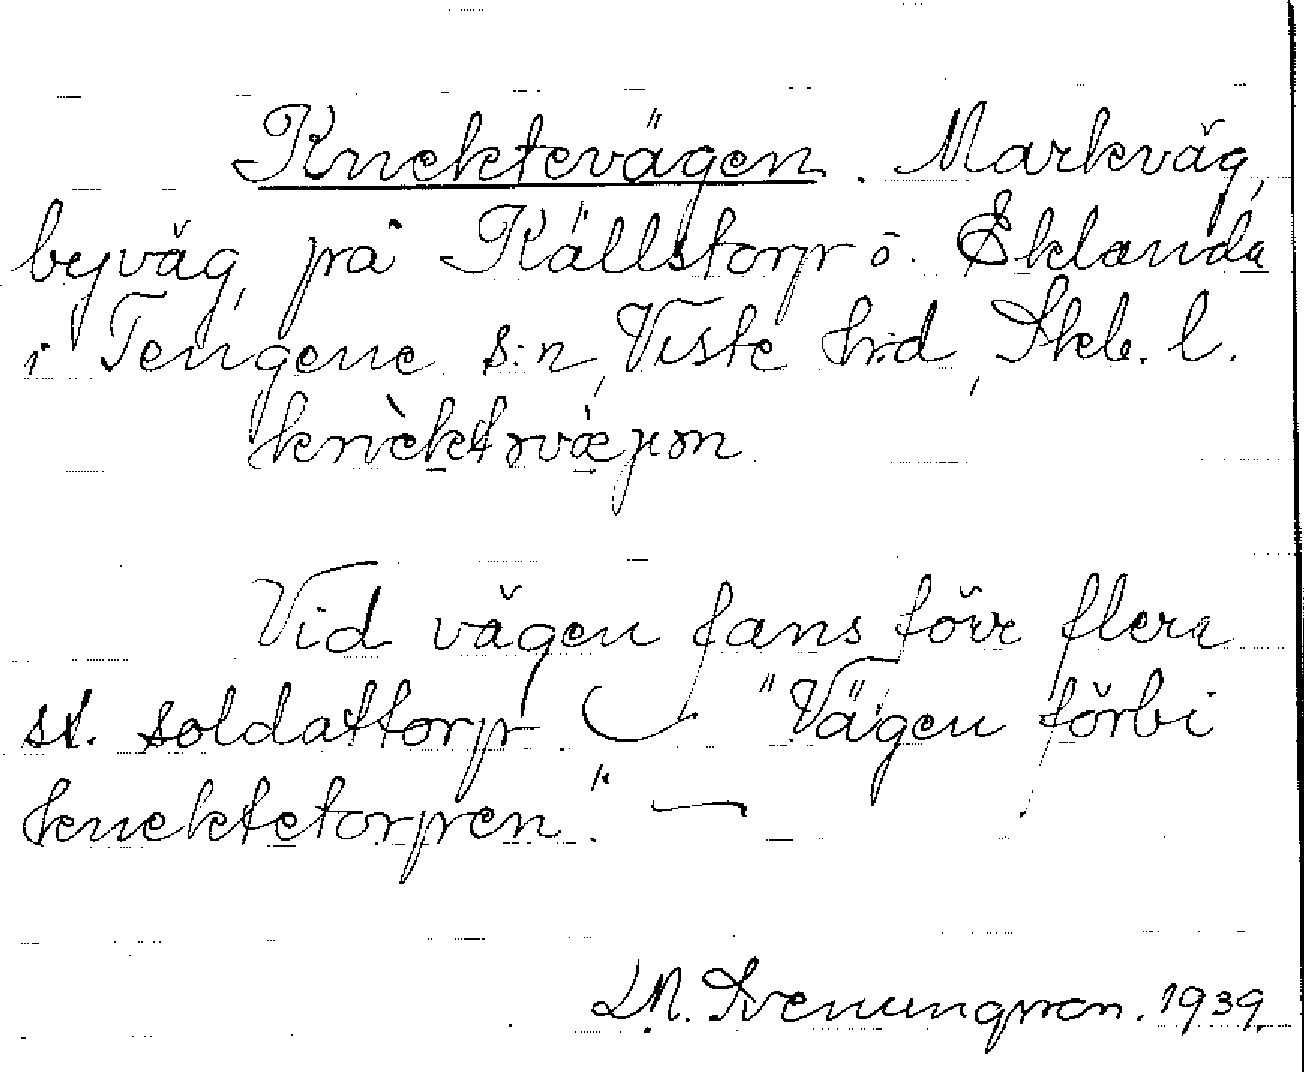 Knektevägen. Markväg,
byväg, på Källstorp o. Eklanda
i Tengene s:n, Viste h:d, Skb. l.
knèktəvæjən
Vid vägen fans förr flera
st. soldattorp "Vägen förbi
knektetorpen." —
D.N. Svenungsson. 1939.